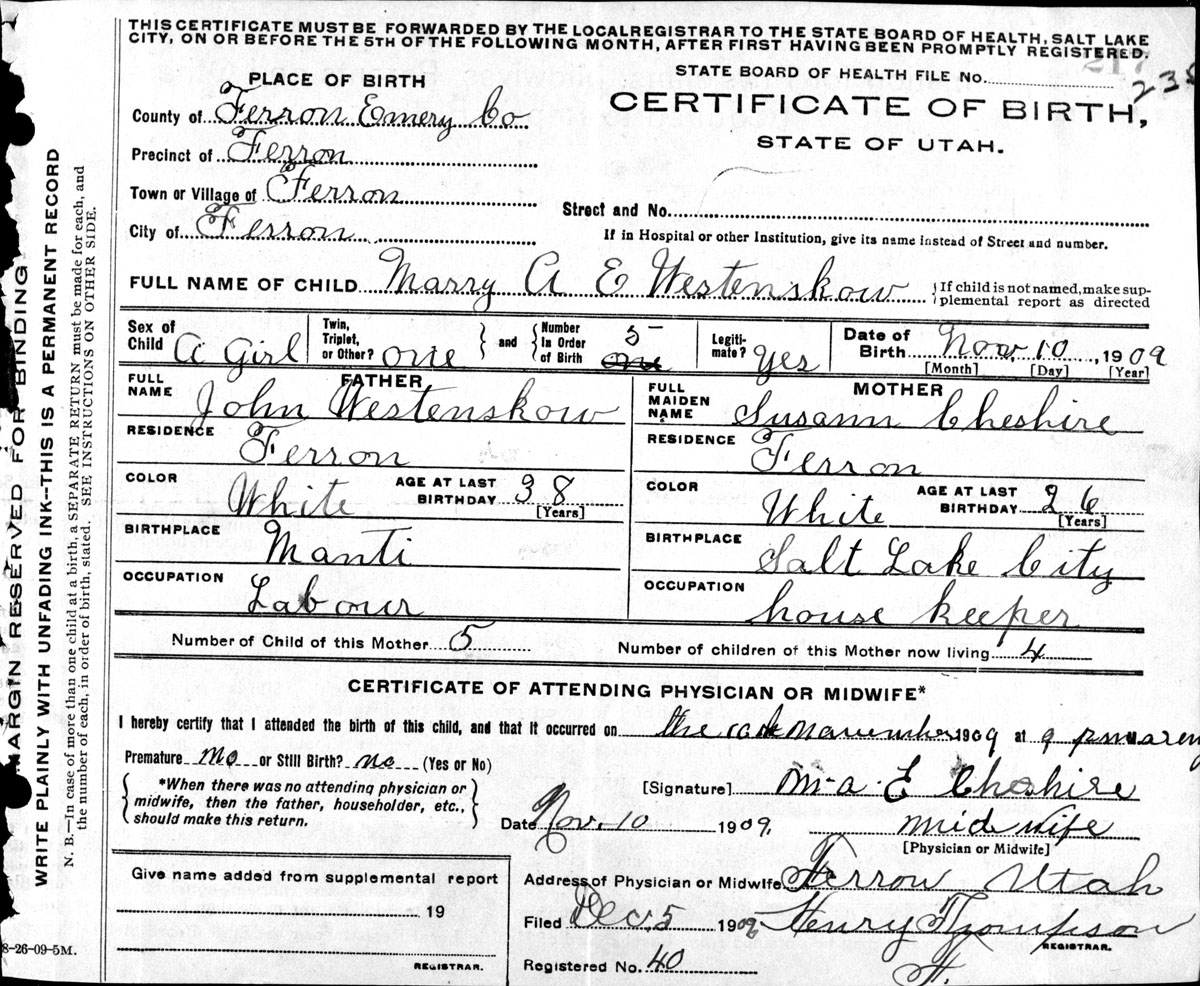 THIS CERTIFICATE MUST BE FORWARDED BY THE LOCAL REGISTRAR TO THE STATE BOARD OF HEALTH, SALT LAKE
CITY, ON OR BEFORE THE 5TH OF THE FOLLOWING MONTH, AFTER FIRST HAVING BEEN PROMPTLY REGISTERED.
217
STATE BOARD OF HEALTH FILE No.
CERTIFICATE OF BIRTH,
STATE OF UTAH.
PLACE OF BIRTH
County of Ferron Emery Co
Precinct of Ferron
Town or Village of Ferron
City of Ferron
Street and No.
If in Hospital or other Institution, give its name instead of Street and number.
FULL NAME OF CHILD Marry A E Westenskow
{If child is not named, make sup-
plemental report as directed
Sex of Child A Girl
Twin, Triplet, or Other? one } and { Number In Order of Birth 5 one
Legiti- mate? Yes
Date of Birth Nov. 10, 1909
[Month] [Day] [Year]
FATHER
FULL NAME John Westenskow
RESIDENCE Ferron
COLOR White AGE AT LAST BIRTHDAY 38 [Years]
BIRTHPLACE Manti
OCCUPATION Labour
MOTHER
FULL MAIDEN NAME Susann Cheshire
RESIDENCE Ferron
COLOR White AGE AT LAST BIRTHDAY 26 [Years]
BIRTHPLACE Salt Lake City
OCCUPATION house keeper
Number of Child of this Mother 5 Number of children of this Mother now living 4
CERTIFICATE OF ATTENDING PHYSICIAN OR MIDWIFE*
I hereby certify that I attended the birth of this child, and that it occurred on the 1909 at 9
Premature No or Still Birth? no (Yes or No)
{ *When there was no attending physician or
midwife, then the father, householder, etc.,
should make this return. }
[Signature] M-A-E Cheshire
Date Nov. 10 1909, mid wife
[Physician or Midwife]
Give name added from supplemental report
19
REGISTRAR.
Address of Physician or Midwife Ferron Utah
Filed Dec. 5 1909 Henry Thompson
REGISTRAR.
Registered No. 40
MARGIN RESERVED FOR BINDING
WRITE PLAINLY WITH UNFADING INK--THIS IS A PERMANENT RECORD
N. B.--In case of more than one child at a birth, a SEPARATE RETURN must be made for each, and
the number of each, in order of birth, stated. SEE INSTRUCTIONS ON OTHER SIDE.
8-26-09-5M.